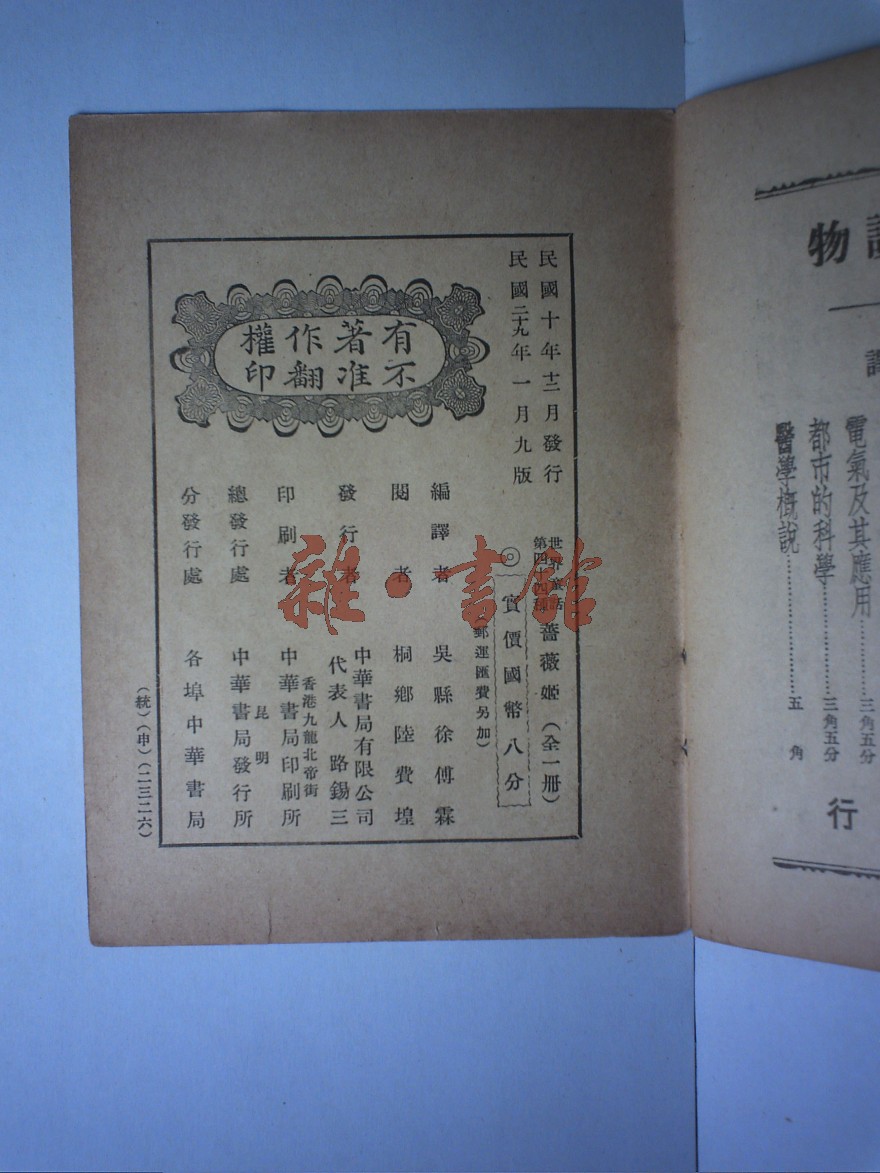 民國十年十二月發行
民國二十九年一月九版
有著作權
不准翻印
世界童話
第四十四種
薔薇姬(全一册)
◎實價國幣八分
(郵運匯費另加)
編譯者 吳縣徐傅霖
閱者 桐鄉陸費堭
發行者 中華書局有限公司
代表人 路錫三
印刷者 香港九龍北帝街
中華書局印刷所
總發行處 昆明
中華書局發行所
分發行處 各埠中華書局
(統)(申)(二三二六)
雜·書館
物
譯
電氣及其應用……三角五分
都市的科學……三角五分
醫學概說……五角
行